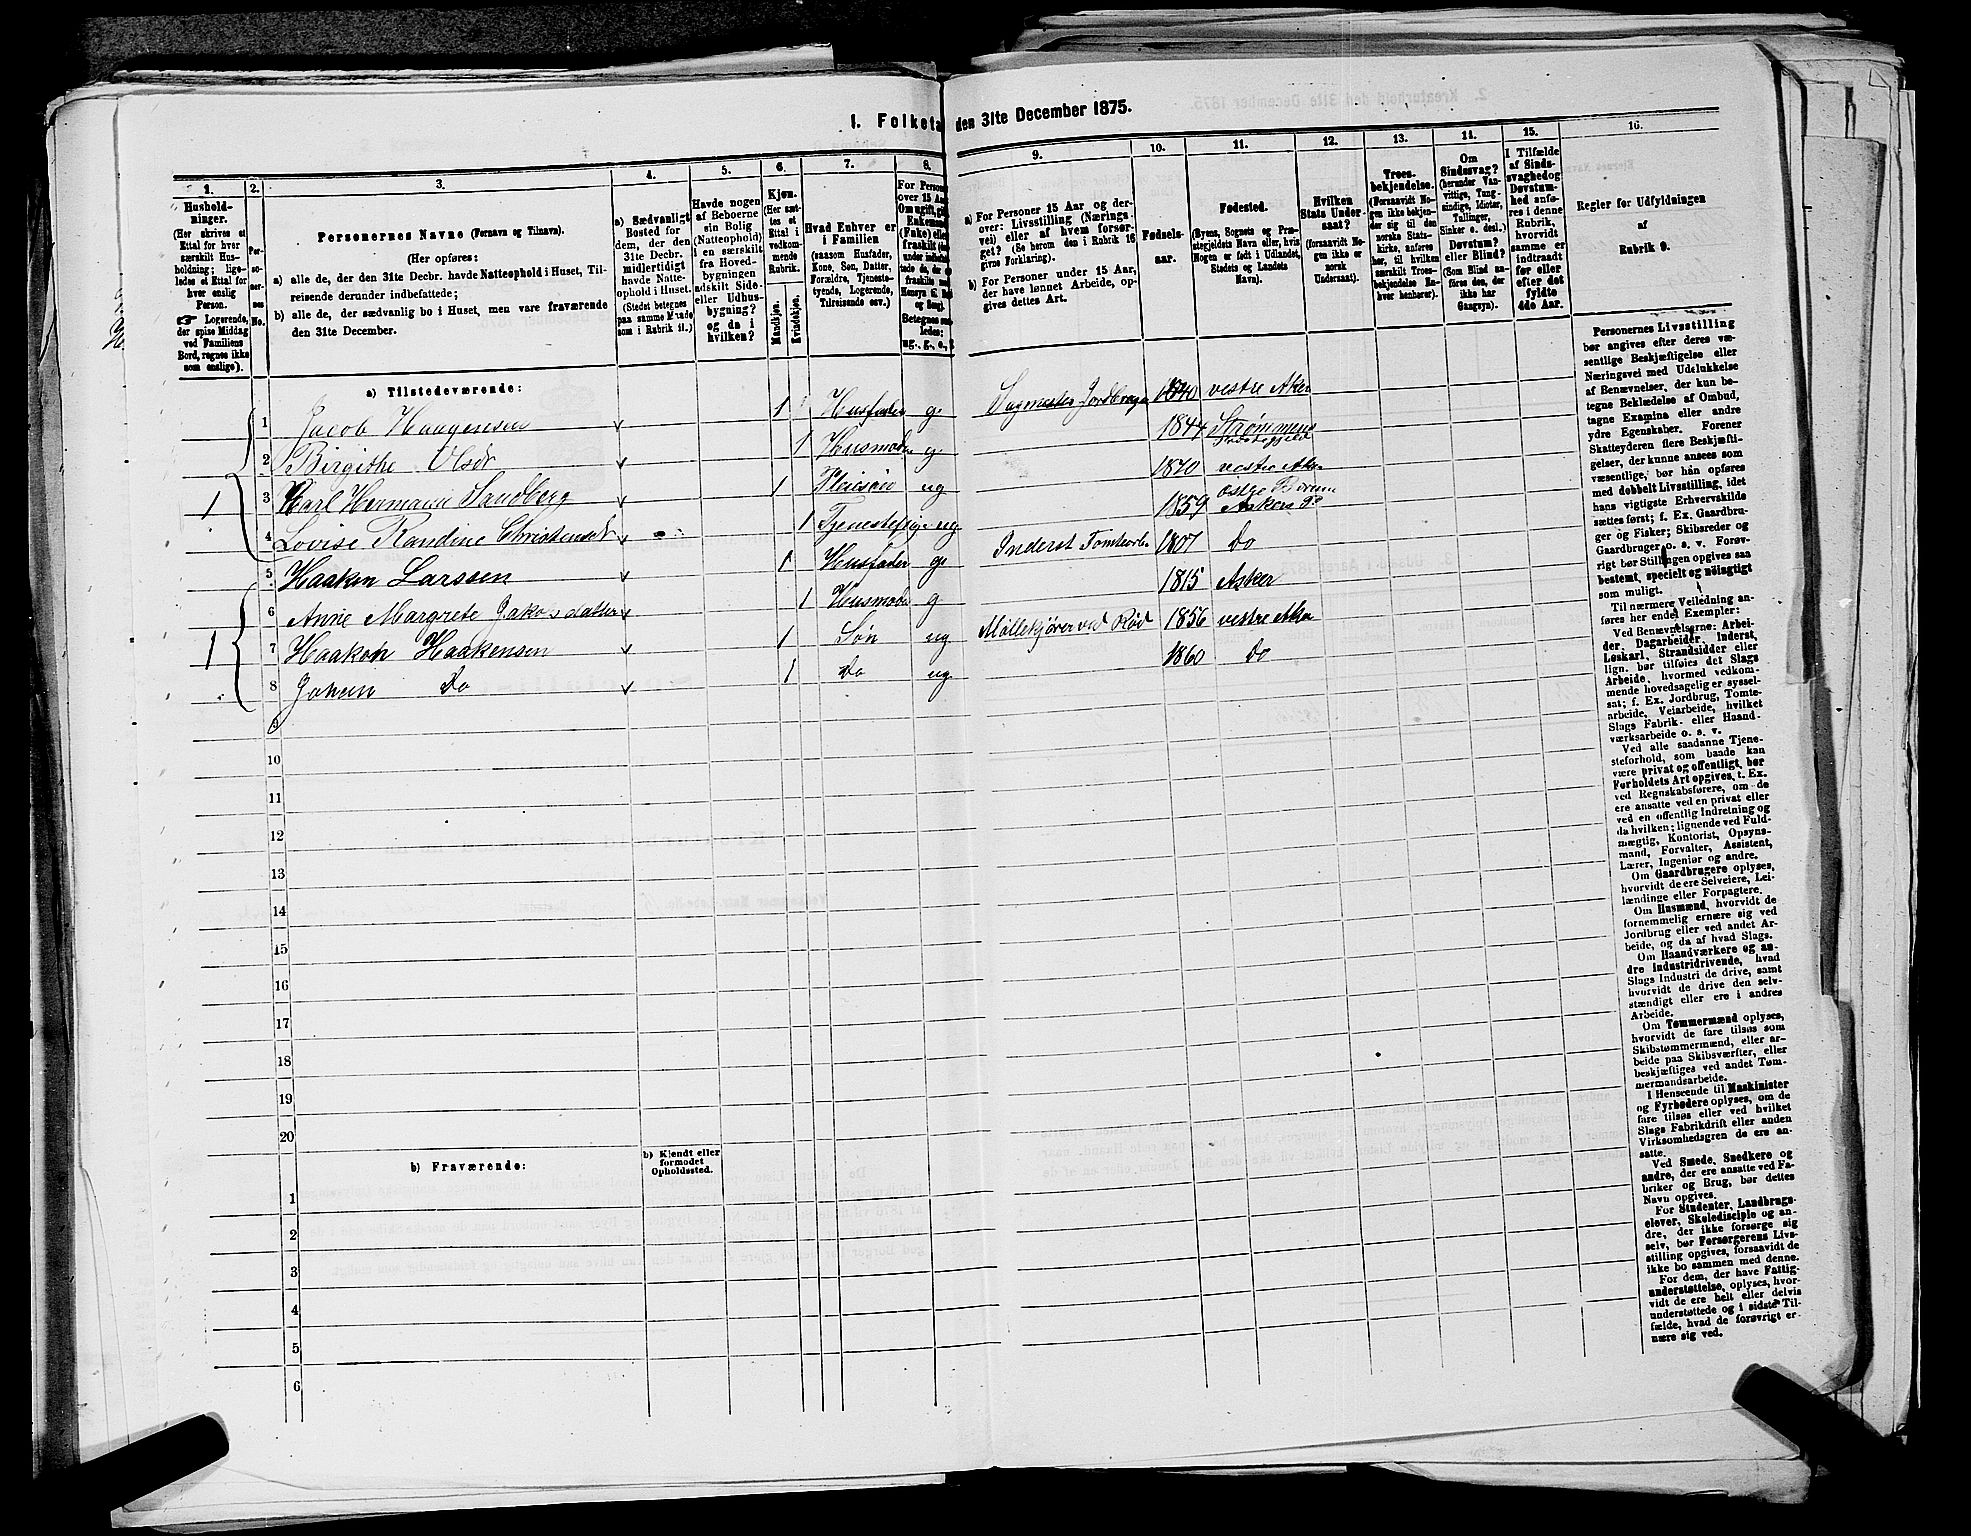 1. Folketa den 31te December 1875.
1. 2. 3. 4. 5. 6. 7. 8. 9. 10. 11. 12. 13. 14. 15. 16.
Hushold-
ninger.
(Her skrives et
Ettal for hver
særskilt Hus-
holdning; lige-
ledes et Ettal for
hver enslig
Person.
☞ Logerende,
der spise Middag
ved Familiens
Bord, regnes ikke
som enslige).
Per-
so-
ner-
nes
No.
Personernes Navne (Fornavn og Tilnavn).
(Her opføres:
a) alle de, der den 31te Decbr. havde Natteophold i Huset, Til-
reisende derunder indbefattede;
b) alle de, der sædvanlig bo i Huset, men vare fraværende
den 31te December.
a) Sædvanligt
Bosted for
dem, der den
31te Decbr.
midlertidigt
havde Natte-
ophold i Huset.
(Stedet betegnes
paa samme Maade
som i Rubrik 11.)
Havde nogen
af Beboerne
sin Bolig
(Natteophold)
i en særskilt
fra Hoved-
bygningen
adskilt Side-
eller Udhus-
bygning?
og da i
hvilken?
Kjøn.
(Her sæt-
tes et
Ettal i
vedkom-
mende
Rubrik.
Mandkjøn.
Kvindekjøn.
Hvad Enhver er
i Familien
(saasom Husfader,
Kone, Søn, Datter,
Forældre, Tjeneste-
tyende, Logerende,
Tilreisende osv.)
For Person
over 15 Aar
Om ugift, gift
Enkemand
(Enke) eller
fraskilt
Betegnes saa-
ledes:
ug., g., e., f.
a) For Personer 15 Aar og der-
over: Livsstilling (Nærings-
vei) eller af hvem forsør-
get? (Se herom den i Rubrik 16
givne Forklaring).
b) For Personer under 15 Aar,
der have lønnet Arbeide, op-
gives dettes Art.
Fødsels-
aar.
Fødested.
(Byens, Sognets og Præ-
stegjeldets Navn eller, hvis
Nogen er født i Udlandet,
Stedets og Landets
Navn).
Hvilken
Stats Under-
saat?
(forsaavidt No-
gen ikke er
norsk
Undersaat).
Troes-
bekjendelse.
(Forsaavidt No-
gen ikke bekjen-
der sig til den
norske Stats-
kirke, anføres
her, til hvilken
særskilt Troes-
bekjendelse En-
hver henhører).
Om
Sindssvag?
(herunder Van-
vittige, Tung-
sindige, Idioter,
Tullinger,
Sinker o. desl.)
Døvstum?
eller Blind?
(Som Blind an-
føres den, der
ikke har
Gangsyn).
I Tilfælde
af Sinds-
svaghed og
Døvstum-
hed anfø-
res i denne
Rubrik,
hvorvidt
samme er
indtraadt
før eller
efter det
fyldte
4de Aar.
Regler for Udfyldningen
af
Rubrik 9.
a) Tilstedeværende:
1 1 Jacob Haagensen v 1 Husfader g. Jordbruger 1840 vestre Aker
2 Birgithe Olsdr v 1 Husmoder g. 1844 Strømmens
3 Karl Hermann Sandberg v 1 Pleiesøn ug 1870 vestre Aker
4 Lovise Randine Christensdr v 1 ug 1859 østre Bærum Askers P
1 5 Haaken Larssen v 1 Husfader g. Inderst Tomtearb. 1807 Do
6 Anne Margrete Jakobsdatter v 1 Husmoder g 1815 Asker
7 Haakon Haakensen v 1 Søn ug Møllekjører ved Rød 1856 vestre Aker
8 Johan Do v 1 Do ug. 1860 Do
9
10
11
12
13
14
15
16
17
18
19
20
b) Fraværende:
b) Kjendt eller
formodet
Opholdssted.
1
2
3
4
5
6
Personernes Livsstilling
bør angives efter deres væ-
sentlige Beskjæftigelse eller
Næringsvei med Udelukkelse
af Benævnelser, der kun be-
tegne Beklædelse af Ombud,
tagne Examina eller andre
ydre Egenskaber. Forener
Skatteyderen flere Beskjæfti-
gelser, der kunne ansees som
væsentlige, bør han opføres
med dobbelt Livsstilling, idet
hans vigtigste Erhvervskilde
sættes først; f. Ex. Gaardbru-
ger og Fisker; Skibsreder og
Gaardbruger o. s. v. Forøv-
rigt bør Stillingen opgives saa
bestemt, specielt og nøiagtigt
som muligt.
Til nærmere Veiledning an-
føres her endel Exempler:
Ved Benævnelserne: Arbei-
der, Dagarbeider, Inderst,
Løskarl, Strandsidder eller
lign. bør tilføies det Slags
Arbeide, hvormed vedkom-
mende hovedsagelig er syssel-
sat; f. Ex. Jordbrug, Tomte-
arbeide, Veiarbeide, hvilket
Slags Fabrik- eller Haand-
værksarbeide o. s. v.
Ved alle saadanne Tjene-
steforhold, som baade kan
være privat og offentligt, bør
Forholdets Art opgives, t. Ex.
ved Regnskabsførere, om de
ere ansatte ved en privat eller
ved en offentlig Indretning og
da hvilken; lignende ved Fuld-
mægtig, Kontorist, Opsyns-
mand, Forvalter, Assistent,
Lærer, Ingeniør og andre.
Om Gaardbrugere oplyses,
hvorvidt de ere Selveiere, Lei-
lændinge eller Forpagtere.
Om Husmænd, hvorvidt de
fornemmelig ernære sig ved
Jordbrug eller ved andet Ar-
beide, og da af hvad Slags.
Om Haandværkere og an-
dre Industridrivende, hvad
Slags Industri de drive, samt
hvorvidt de drive den selv-
stændigt eller ere i andres
Arbeide.
Om Tømmermænd oplyses,
hvorvidt de fare tilsøs som
Skibstømmermænd, eller ar-
beide paa Skibsværfter, eller
beskjæftiges ved andet Tøm-
mermandsarbeide.
I Henseende til Maskinister
og Fyrbødere oplyses, om de
fare tilsøs eller ved hvilket
Slags Fabrikdrift eller anden
Virksomhedsgren de ere an-
satte.
Ved Smede, Snedkere og
andre, der ere ansatte ved Fa-
briker og Brug, bør dettes
Navn opgives.
For Studenter, Landbrugs-
elever, Skoledisciple og an-
dre, der ikke forsørge sig
selv, bør Forsørgerens Livs-
stilling opgives, forsaavidt de
ikke bo sammen med denne.
For dem, der have Fattig-
understøttelse, oplyses, hvor-
vidt de ere helt eller delvis
understøttede og i sidste Til-
fælde, hvad de forøvrigt er-
nære sig ved.